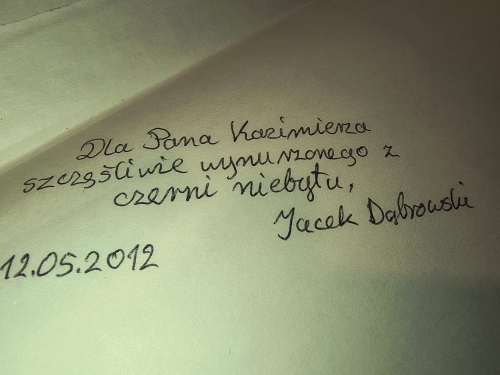 Dla Pana Kazimierza
szczęśliwie wynurzonego z
czerni niebytu,
Jacek Dąbrowski
12.05.2012